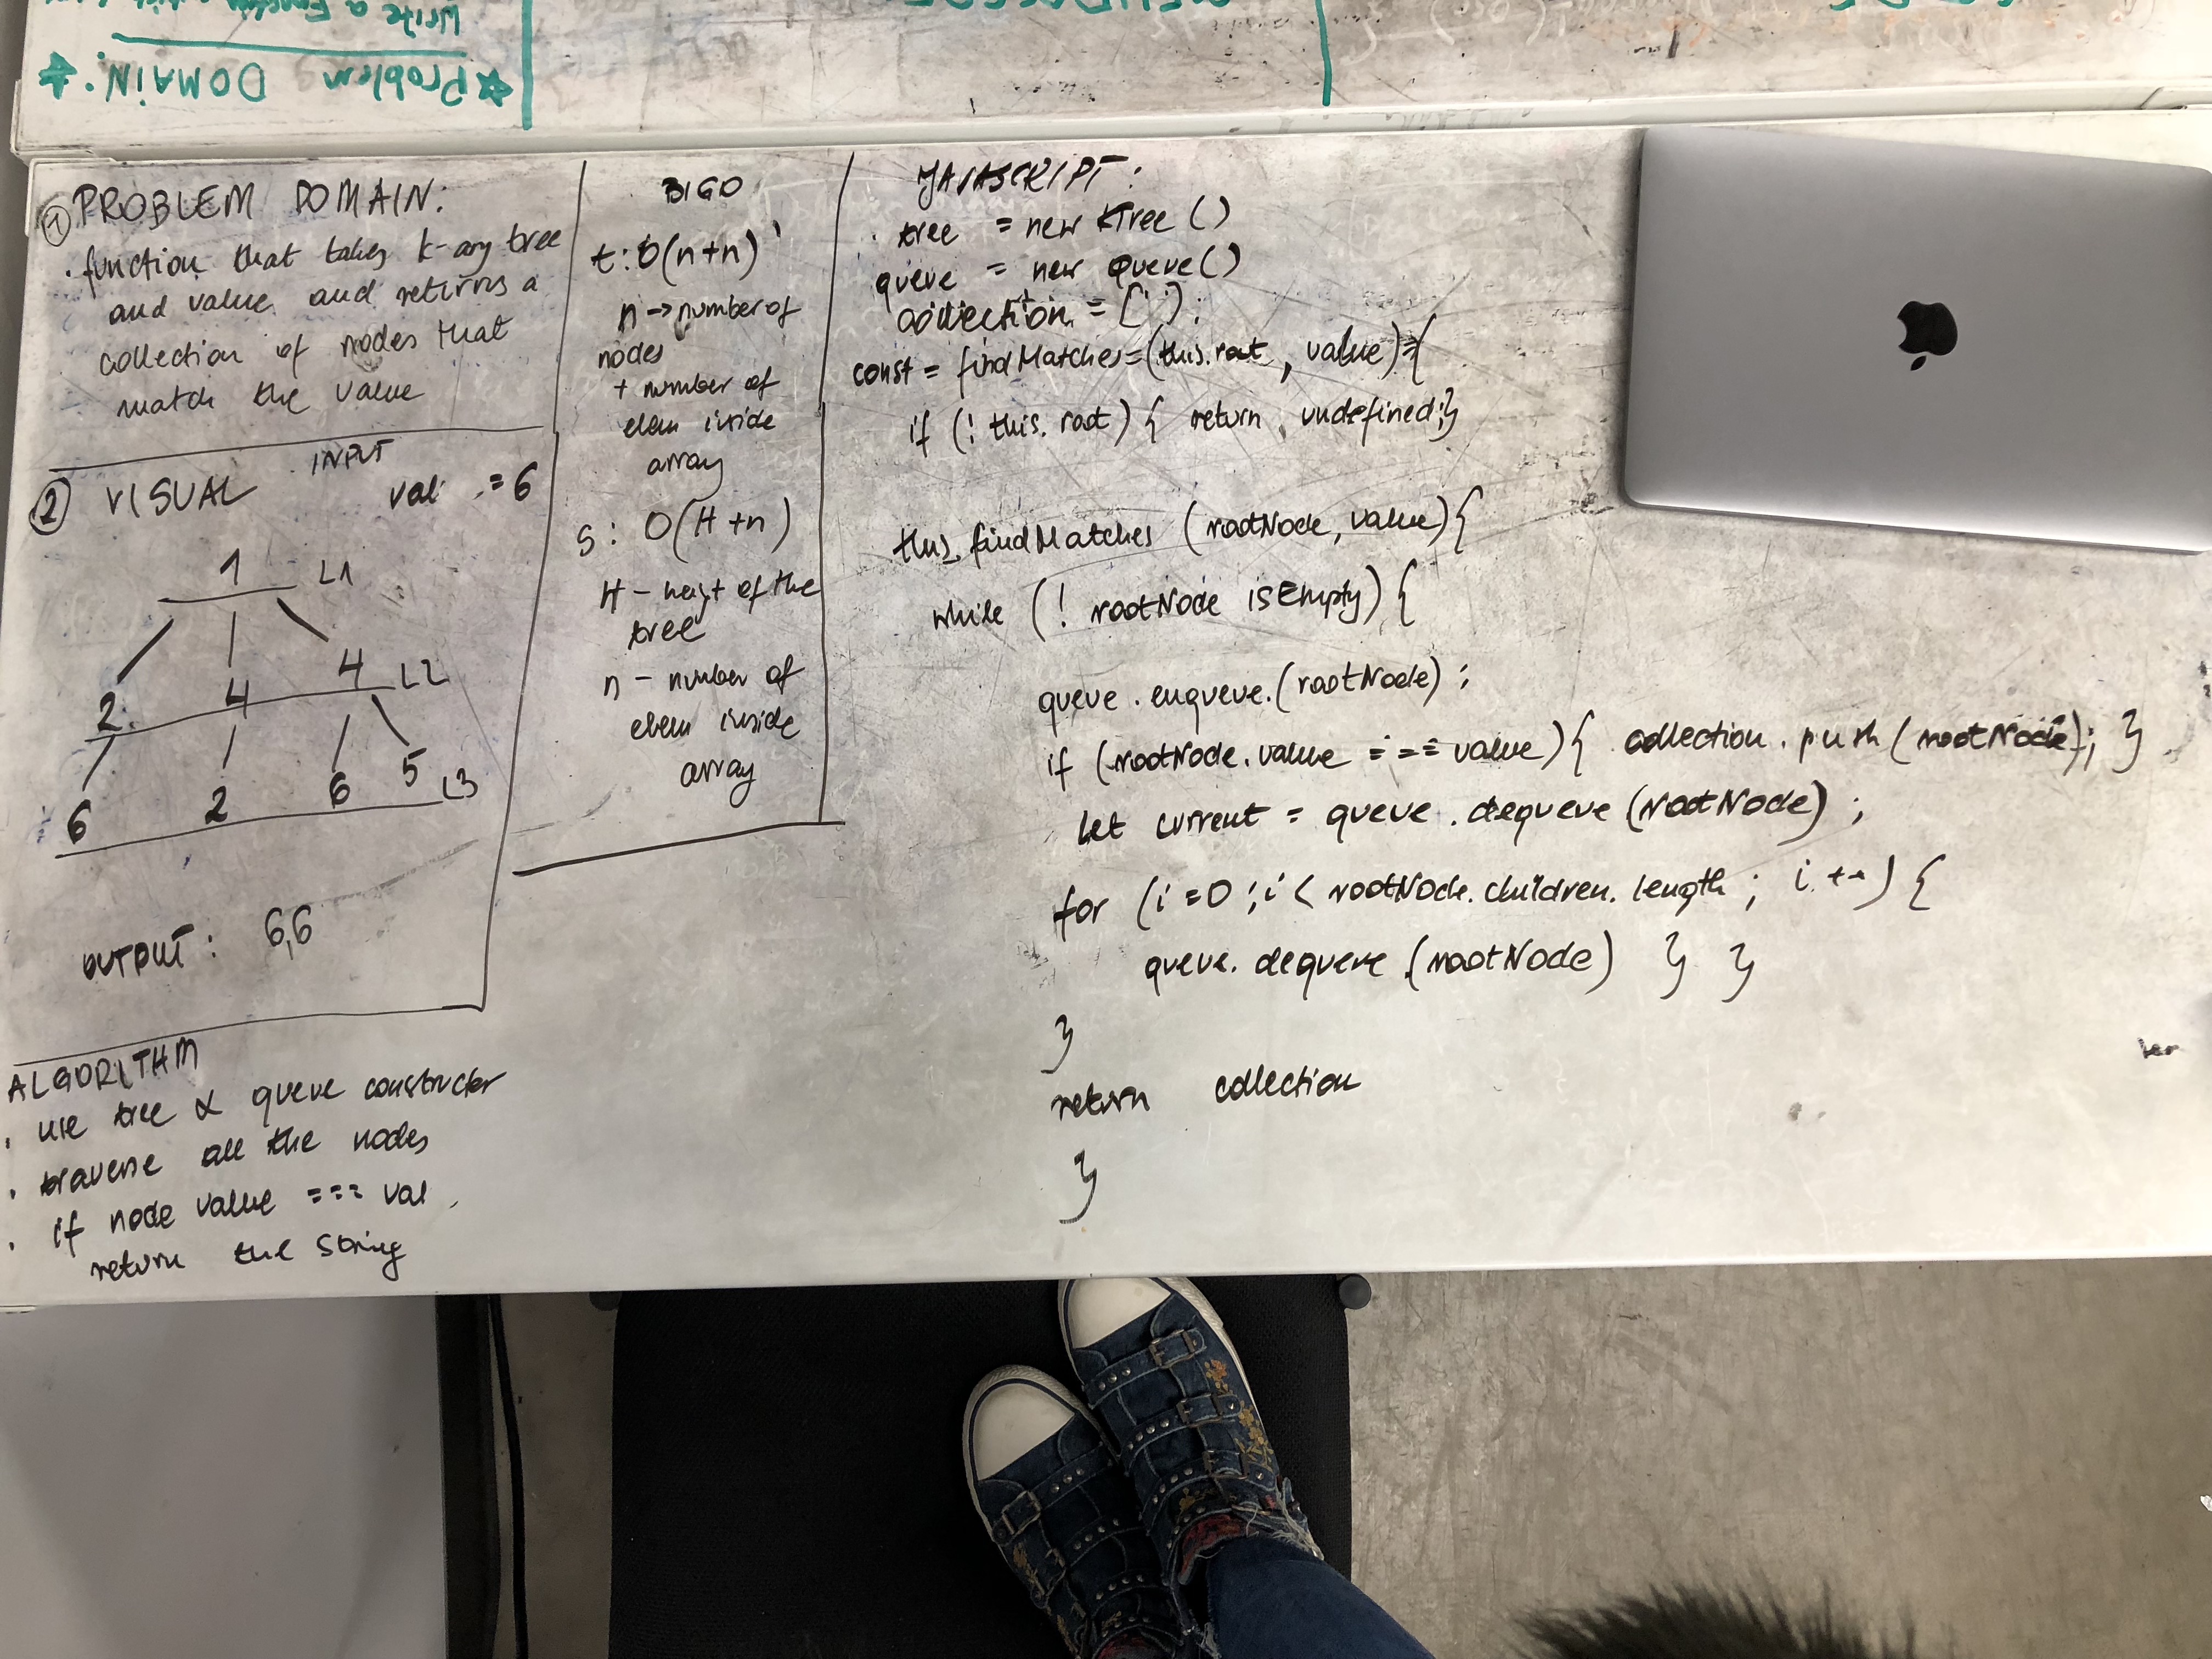 * Problem DOMAIN:
Write a
① PROBLEM DOMAIN:
. function that takes k-ary tree
and value and returns a
collection of nodes that
match the value
② VISUAL
INPUT
val := 6
1 L1
2 4 4 L2
6 2 6 5 L3
OUTPUT: 6,6
ALGORITHM
. use tree & queue constructor
. traverse all the nodes
. if node value === val,
return the string
BIGO
t: O(n+n)
n → number of
nodes
+ number of
elem inside
array
S: O(H+n)
H - heigt of the
tree
n - number of
elem inside
array
tree = new kTree()
queue = new queue()
collection = [];
const = findMatches=(this.root, value)=>{
if (!this.root) { return undefined;}
this_findMatches (rootNode, value) {
while (! rootNode isEmpty) {
queue.enqueue.(rootNode);
if (rootNode.value === value) { collection.push (rootNode); }
let current = queue.dequeue (rootNode);
for (i=0; i < rootNode.children.length; i++) {
queue.dequeue (rootNode) } }
}
return collection
}